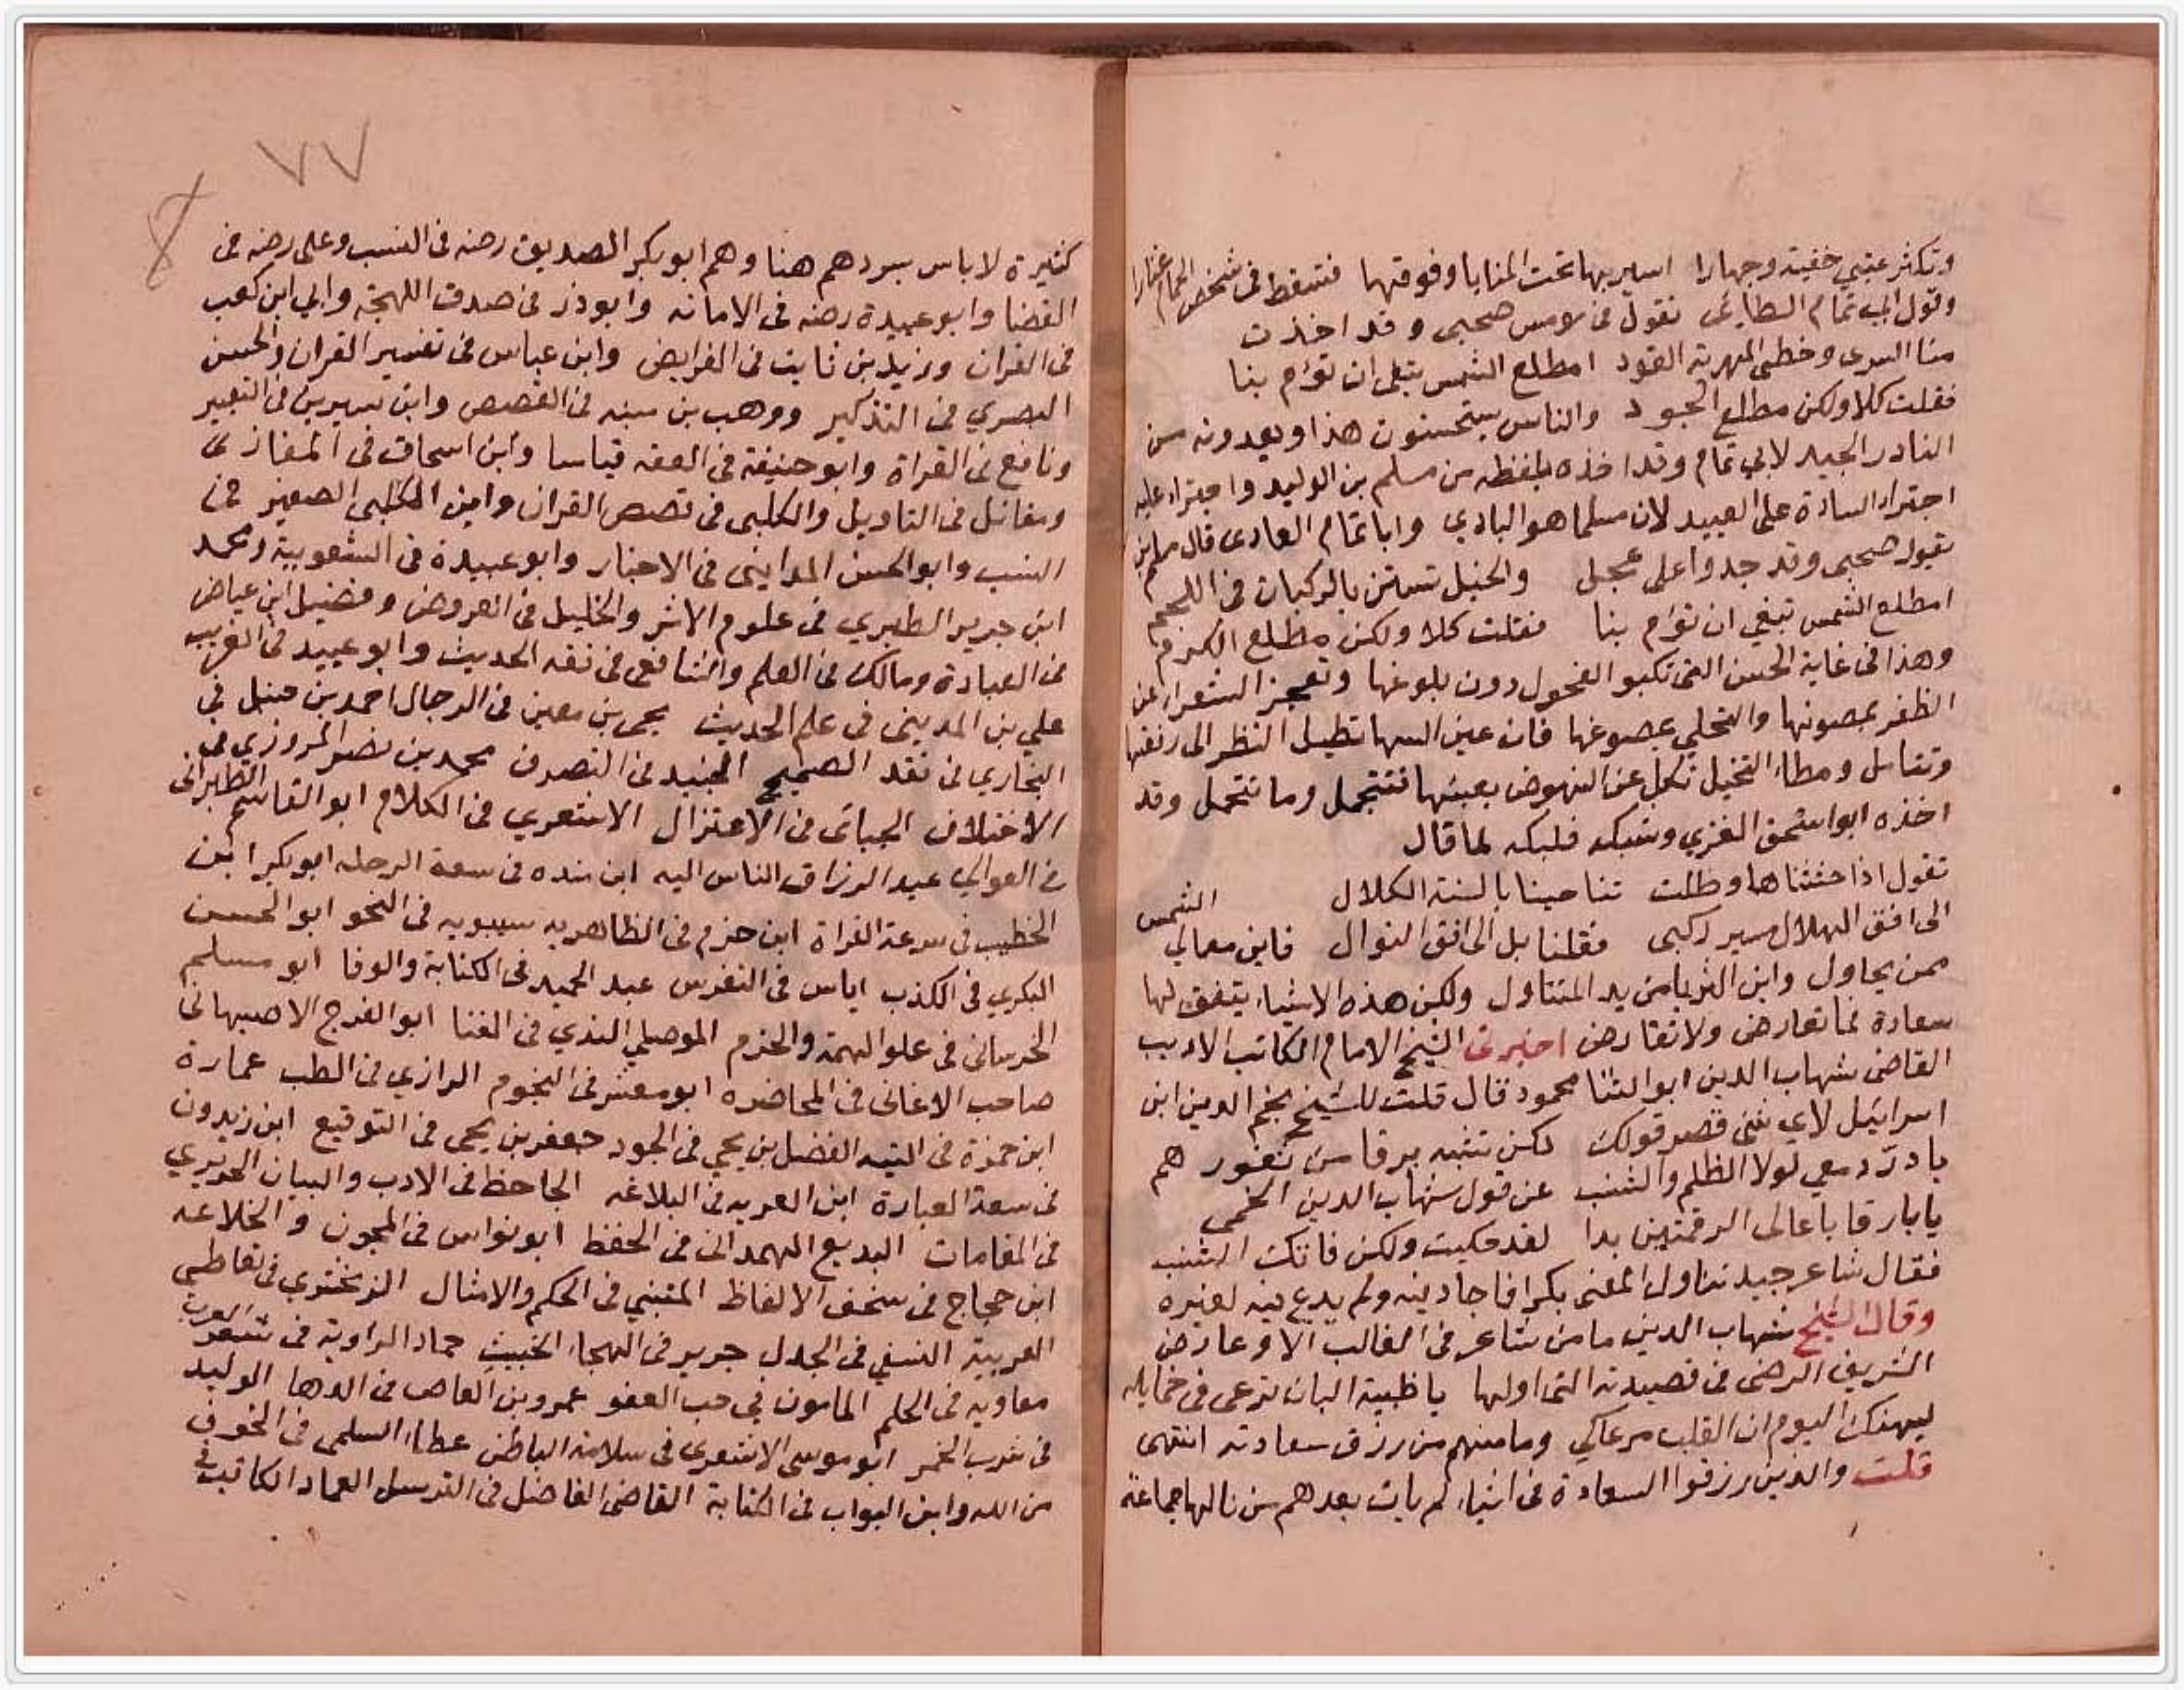 وتكثر عتبي خفية وجهارا اسير بها تحت المنايا وفوقها فتسقط في شخص الحمام عثارا
وقول ابي تمام الطائي نقول في قومس صحبي وقد اخذت
منا السرى وخطى المهرية القود امطلع الشمس تبغي ان تؤم بنا
فقلت كلا ولكن مطلع الجود والناس يستحسنون هذا ويعدونه من
النادر الجيد لابي تمام وقد اخذه بلفظه من مسلم بن الوليد واجترا عليه
اجتراء السادة على العبيد لان مسلما هو البادي وابا تمام العادي قال مسلم
يقول صحبي وقد جدوا على عجل والخيل تستن بالركبان في اللجم
امطلع الشمس تبغي ان تؤم بنا فقلت كلا ولكن مطلع الكرم
وهذا في غاية الحسن التي تكبو الفحول دون بلوغها وتعجز الشعراء عن
الظفر بمصونها والتحلي بمصوغها فان عين السها تطيل النظر الى رفعتها
وتتامل ومطا التخيل تكل عن النهوض بعبئها فتتجمل وما تتحمل وقد
اخذه ابو اسحق الغزي وشبكه فلبكه لما قال
تقول اذا حثثناها وظلت تناجينا بالسنة الكلال
الى افق الهلال مسير ركبي فقلنا بل الى افق النوال فاين معالي الشمس
ممن يحاول واين الثريا من يد المتناول ولكن هذه الاشياء يتفق لها
سعادة فما تعارض ولا تقارض اخبرني الشيخ الامام الكاتب الاديب
القاضي شهاب الدين ابو الثنا محمود قال قلت للشيخ نجم الدين ابن
اسرائيل لاي شي قصر قولك لكن تشبه برقا من ثغور هم
يا در دمعي لولا الظلم والشنب عن قول شهاب الدين الخيمي
يا بارقا باعالى الرقمتين بدا لقد حكيت ولكن فاتك الشنب
فقال شاعر جيد تناول المعنى بكرا فاجاد فيه ولم يدع فيه لغيره
وقال الشيخ شهاب الدين ما من شاعر في الغالب الا وعارض
الشريف الرضى في قصيدته التي اولها يا ظبية البان ترعى في خمايله
ليهنك اليوم ان القلب مرعاكي وما منهم من رزق سعادته انتهى
قلت والذين رزقوا السعادة في اشياء لم يات بعدهم من نالها جماعة
٧٧
كثيرة لا باس بسردهم هنا وهم ابو بكر الصديق رضه في النسب وعلى رضه في
القضا وابو عبيدة رضه في الامانه وابوذر في صدق اللهجة وابي ابن كعب
في القران وزيد بن ثابت في الفرايض وابن عباس في تفسير القران والحسن
البصري في التذكير ووهب بن منبه في القصص وابن سيرين في التعبير
ونافع في القراة وابو حنيفة في الفقه قياسا وابن اسحاق في المغازي
ومقاتل في التاويل والكلبي في قصص القران وابن الكلبي الصغير في
النسب وابو الحسن المدايني في الاخبار وابو عبيدة في الشعوبية ومحمد
ابن جرير الطبري في علوم الاثر والخليل في العروض وفضيل ابن عياض
في العبادة ومالك في العلم والشافعي في فقه الحديث وابو عبيد في الغريب
علي بن المديني في علم الحديث يحيى بن معين في الرجال احمد بن حنبل في
البخاري في نقد الصحيح الجنيد في التصوف محمد بن نصر المروزي في
الاختلاف الجبائي في الاعتزال الاشعري في الكلام ابو القاسم الطبراني
في العوالي عبد الرزاق الناس اليه ابن منده في سعة الرحله ابو بكر ابن
الخطيب في سرعة القراة ابن حزم في الظاهريه سيبويه في النحو ابو الحسن
البكري في الكذب اياس في التفرس عبد الحميد في الكتابة والوفا ابو مسلم
الخرساني في علو الهمة والحزم الموصلي النديم في الغنا ابو الفرج الاصبهاني
صاحب الاغاني في المحاضره ابو معشر في النجوم الرازي في الطب عمارة
ابن حمزة في التيه الفضل بن يحي في الجود جعفر بن يحيى في التوقيع ابن زيدون
في سعة العبارة ابن القريه في البلاغه الجاحظ في الادب والبيان الحريري
في المقامات البديع الهمداني في الحفظ ابو نواس في المجون والخلاعه
ابن حجاج في سخف الالفاظ المتنبي في الحكم والامثال الزمخشري في تعاطي
العربية النسفي في الجدل جرير في الهجاء الخبيث حماد الراوية في شعر العرب
معاويه في الحلم المامون في حب العفو عمرو بن العاص في الدها الوليد
في شرب الخمر ابو موسى الاشعري في سلامة الباطن عطاء السلمي في الخوف
من الله وابن البواب في الكتابة القاضي الفاضل في الترسل العماد الكاتب في